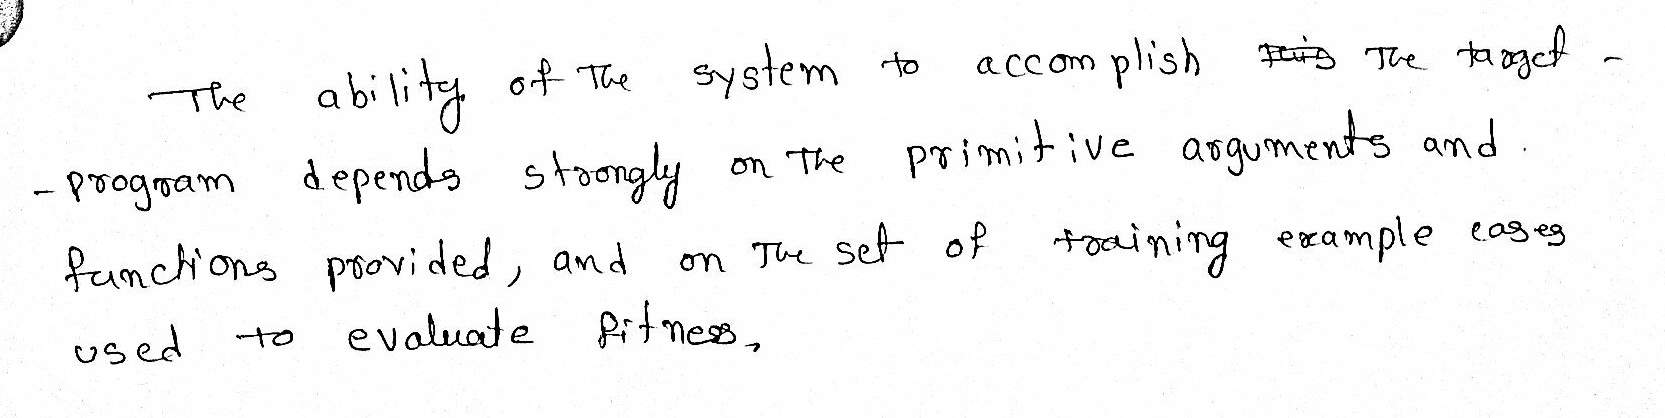 The ability of the system to accomplish this the target -
- program depends strongly on the primitive arguments and .
functions provided, and on the set of training example cases
used to evaluate fitness,